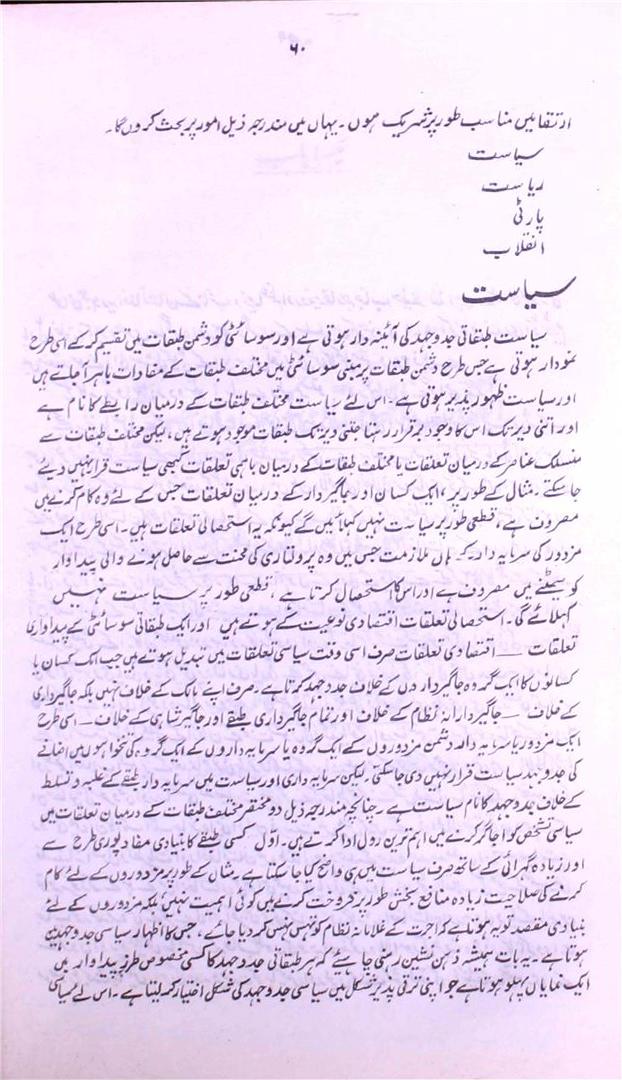 ۶۰
ارتقا میں مناسب طور پر شریک ہوں ۔ یہاں میں مندرجہ ذیل امور پر بحث کروں گا ۔
سیاست
ریاست
پارٹی
انقلاب
سیاست
سیاست طبقاتی جدوجہد کی آئینہ دار ہوتی ہے اور سوسائٹی کو دشمن طبقات میں تقسیم کر کے اسی طرح
نمودار ہوتی ہے جس طرح دشمن طبقات پر مبنی سوسائٹی میں مختلف طبقات کے مفادات باہر آ جاتے ہیں
اور سیاست ظہور پذیر ہوتی ہے ۔ اس لئے سیاست مختلف طبقات کے درمیان رابطے کا نام ہے
اور اتنی دیر تک اس کا وجود برقرار رہتا جتنی دیر تک طبقات موجود ہوتے ہیں ، لیکن مختلف طبقات سے
منسلک عناصر کے درمیان تعلقات یا مختلف طبقات کے درمیان باہمی تعلقات کبھی سیاست قرار نہیں دیئے
جا سکتے ۔ مثال کے طور پر ، ایک کسان اور جاگیردار کے درمیان تعلقات جس کے لئے وہ کام کرنے میں
مصروف ہے ، قطعی طور پر سیاست نہیں کہلائیں گے کیونکہ یہ استحصالی تعلقات ہیں ۔ اسی طرح ایک
مزدور کی سرمایہ دار کے ہاں ملازمت جس میں وہ پرولتاری کی محنت سے حاصل ہونے والی پیداوار
کو سمیٹنے میں مصروف ہے اور اس کا استحصال کرتا ہے ، قطعی طور پر سیاست نہیں
کہلائے گی ۔ استحصالی تعلقات اقتصادی نوعیت کے ہوتے ہیں اور ایک طبقاتی سوسائٹی کے پیداواری
تعلقات — اقتصادی تعلقات صرف اسی وقت سیاسی تعلقات میں تبدیل ہوتے ہیں جب ایک کسان یا
کسانوں کا ایک گروہ جاگیرداروں کے خلاف جدوجہد کرتا ہے ۔ صرف اپنے مالک کے خلاف نہیں بلکہ جاگیرداری
کے خلاف — جاگیردارانہ نظام کے خلاف اور تمام جاگیرداری طبقے اور جاگیر شاہی کے خلاف — اسی طرح
ایک مزدور یا سرمایہ دار دشمن مزدوروں کے ایک گروہ یا سرمایہ داروں کے ایک گروہ کی تنخواہوں میں اضافے
کی جدوجہد سیاست قرار نہیں دی جا سکتی ۔ لیکن سرمایہ داری اور سیاست میں سرمایہ دار طبقے کے غلبہ و تسلط
کے خلاف جدوجہد کا نام سیاست ہے ۔ چنانچہ مندرجہ ذیل دو مختصر مختلف طبقات کے درمیان تعلقات میں
سیاسی تشخص کو اجاگر کرنے میں اہم ترین رول ادا کرتے ہیں ۔ اوّل ، کسی طبقے کا بنیادی مفاد پوری طرح سے
اور زیادہ گہرائی کے ساتھ صرف سیاست میں ہی واضح کیا جا سکتا ہے ۔ مثال کے طور پر مزدوروں کے لئے کام
کرنے کی صلاحیت زیادہ منافع بخش طور پر فروخت کرنے میں کوئی اہمیت نہیں بلکہ مزدوروں کے لئے
بنیادی مقصد تو یہ ہوتا ہے کہ اجرت کے غلامانہ نظام کو تہس نہس کر دیا جائے ، جس کا اظہار سیاسی جدوجہد میں
ہوتا ہے ۔ یہ بات ہمیشہ ذہن نشین رہنی چاہیئے کہ ہر طبقاتی جدوجہد کا کسی مخصوص طرز پیداوار میں
ایک نمایاں پہلو ہوتا ہے جو اپنی ترقی پذیر شکل میں سیاسی جدوجہد کی شکل اختیار کر لیتا ہے ۔ اس لئے سیاسی